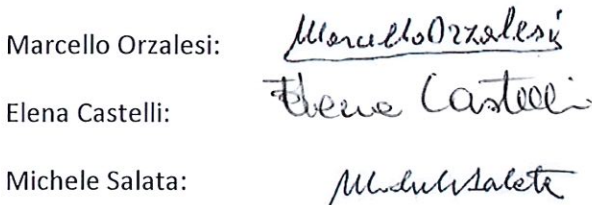 Marcello Orzalesi: Marcello Orzalesi
Elena Castelli: Elena Castelli
Michele Salata: Michele Salata